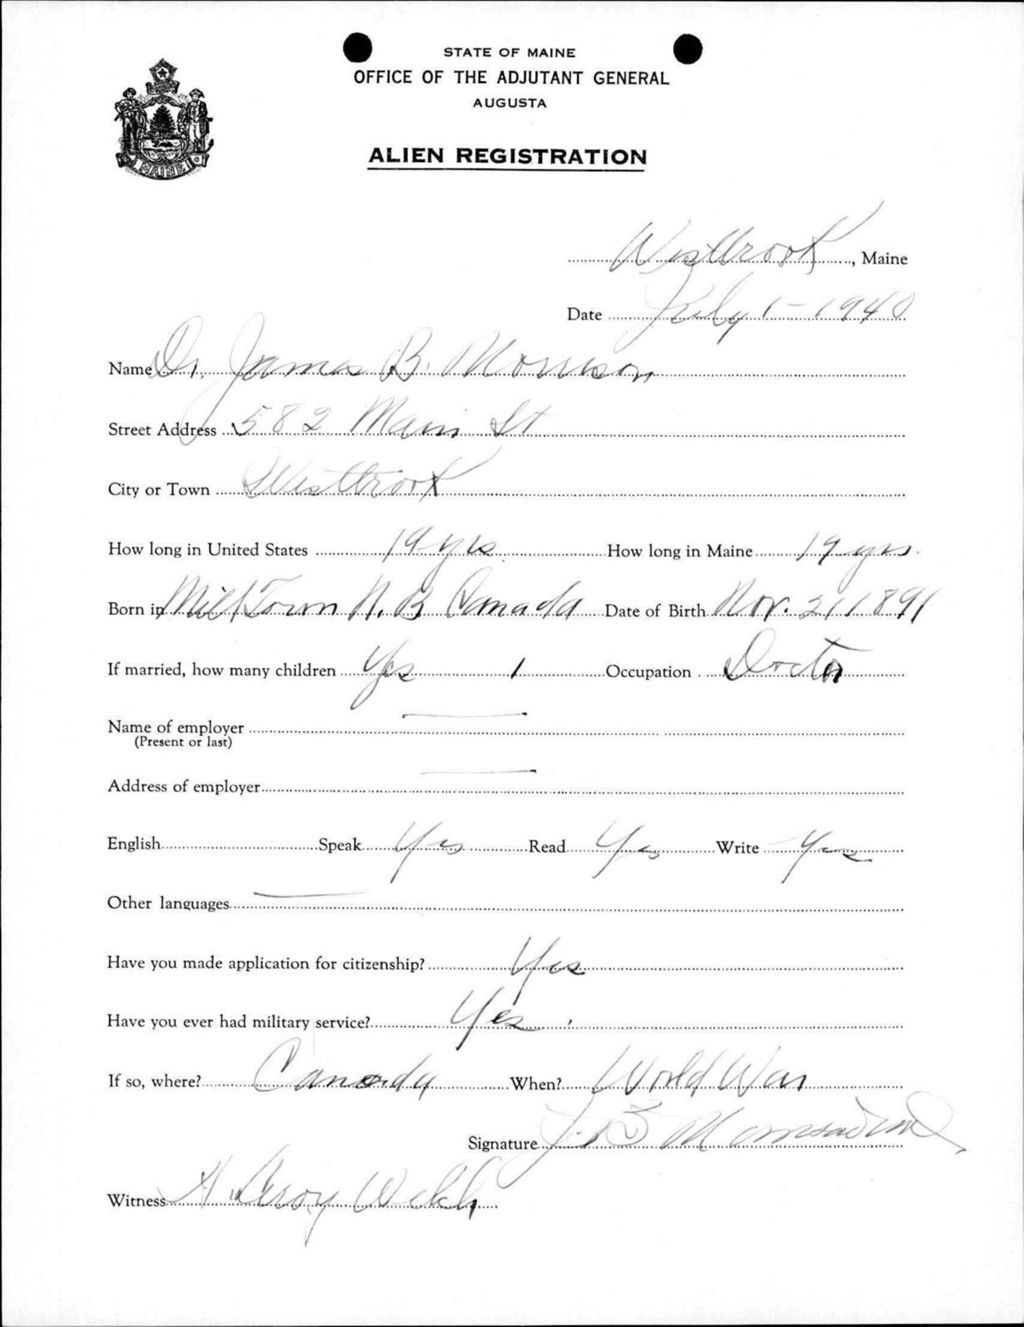 STATE OF MAINE
OFFICE OF THE ADJUTANT GENERAL
AUGUSTA
ALIEN REGISTRATION
MAINE
Westbrook, Maine
Date July 1-1940
Name Dr. James B. Morrison
Street Address 582 Main St
City or Town Westbrook
How long in United States 19 yrs How long in Maine 19 yrs.
Born in MillTown N.B Canada Date of Birth Nov. 2/1891
If married, how many children Yes 1 Occupation Doctor
Name of employer
(Present or last)
Address of employer
English Speak Yes Read Yes Write Yes
Other languages
Have you made application for citizenship? Yes
Have you ever had military service? Yes.
If so, where? Canada When? World War
Signature J. B Morrison
Witness H. Leroy Welch